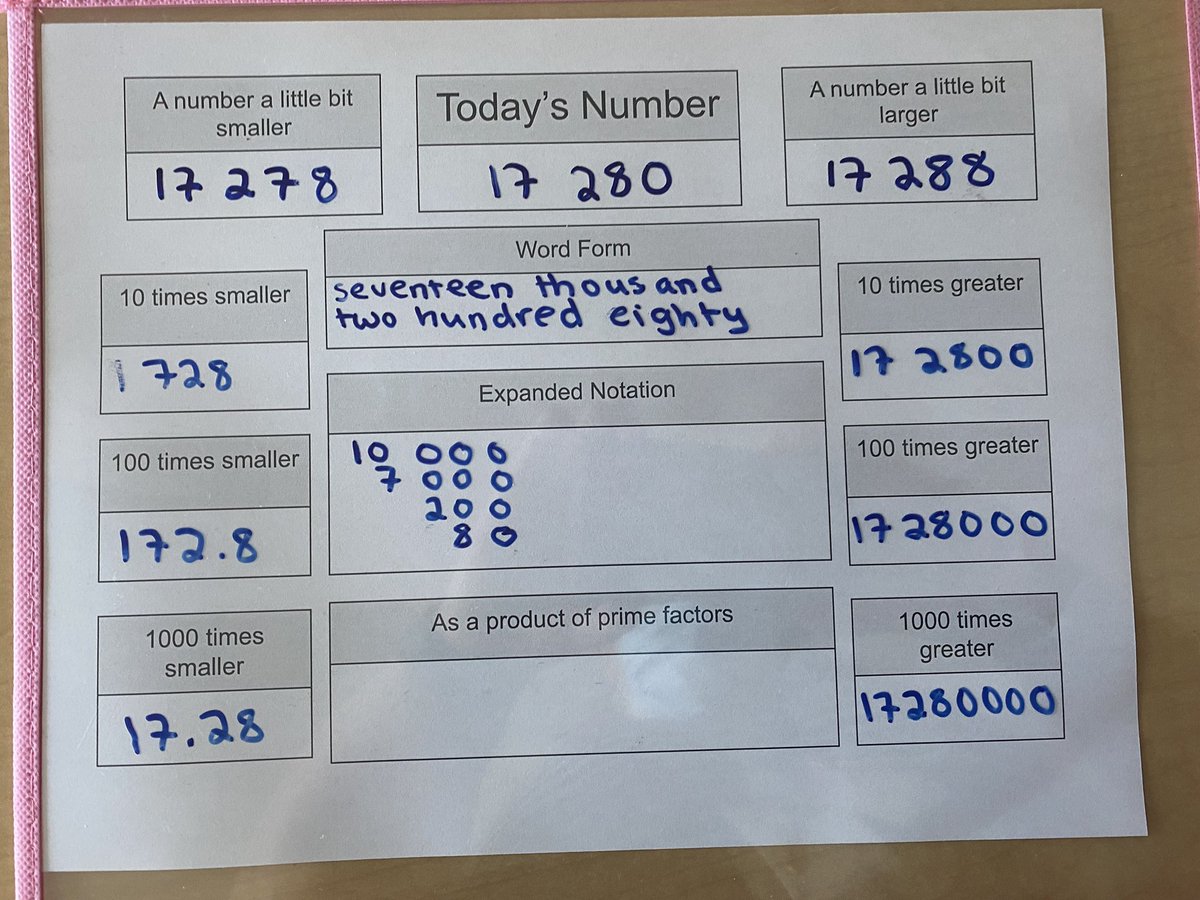 A number a little bit
smaller
17 278
Today's Number
17 280
A number a little bit
larger
17 288
Word Form
seventeen thousand
two hundred eighty
10 times smaller
1 728
10 times greater
17 2800
Expanded Notation
10 000
7 000
200
80
100 times smaller
172.8
100 times greater
1728000
As a product of prime factors
1000 times
smaller
17.28
1000 times
greater
17280000